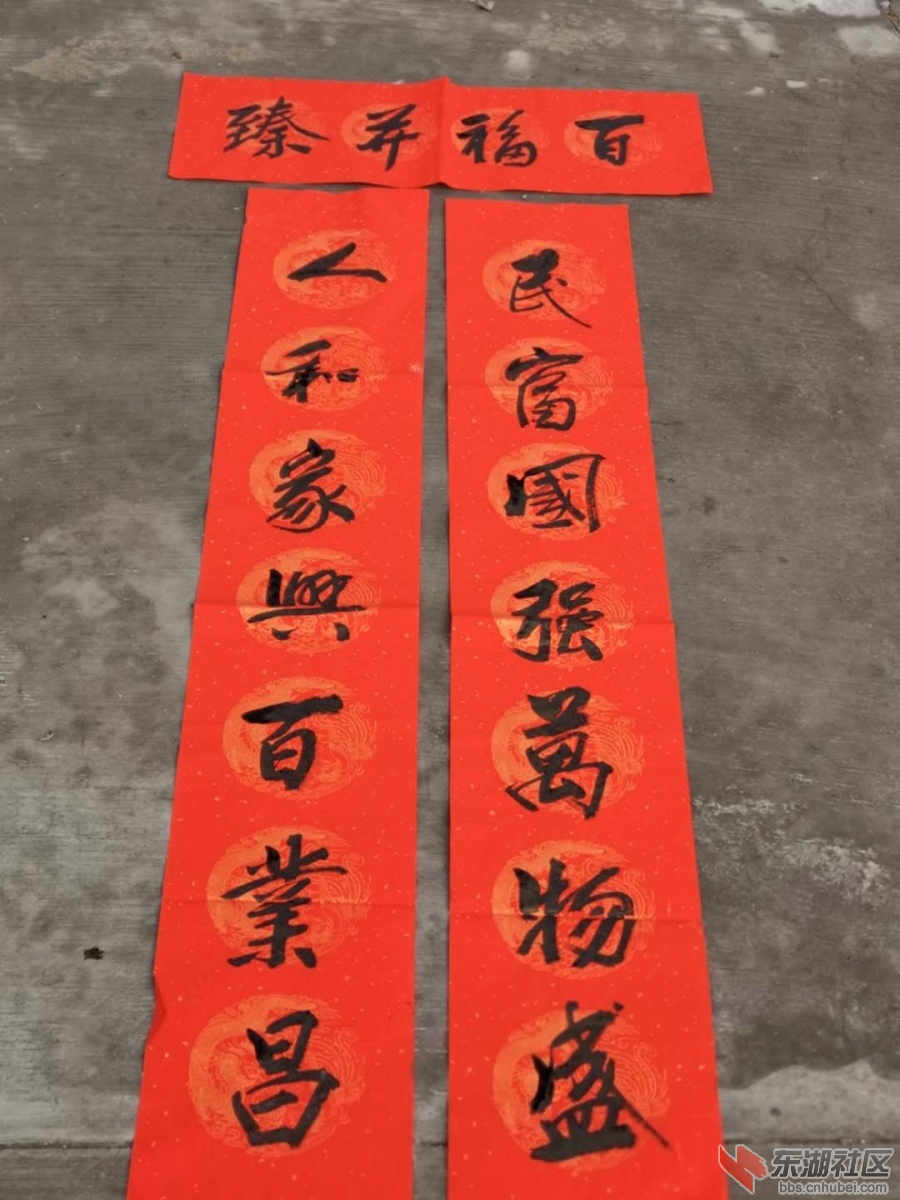 百福并臻
民富國强萬物盛
人和家興百業昌
东湖社区
bbs.cnhubei.com